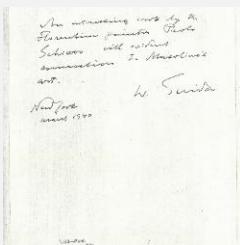 An interesting work by the
Florentine painter Paolo
Schiavo with evident
connection to Masolino's
art.
W. Suida
New York
march 1940